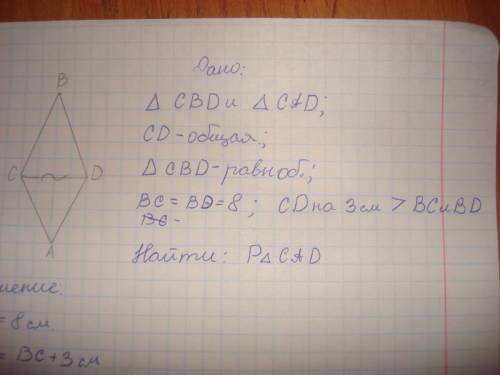 Дано:
B
△ CBD и △ CAD;
CD-общая;
C D
△ CBD-равноб.;
BC = BD = 8; CD на 3 см > BC и BD
BC -
A
Найти: P△ CAD
шение:
= 8 см
= BC + 3 см